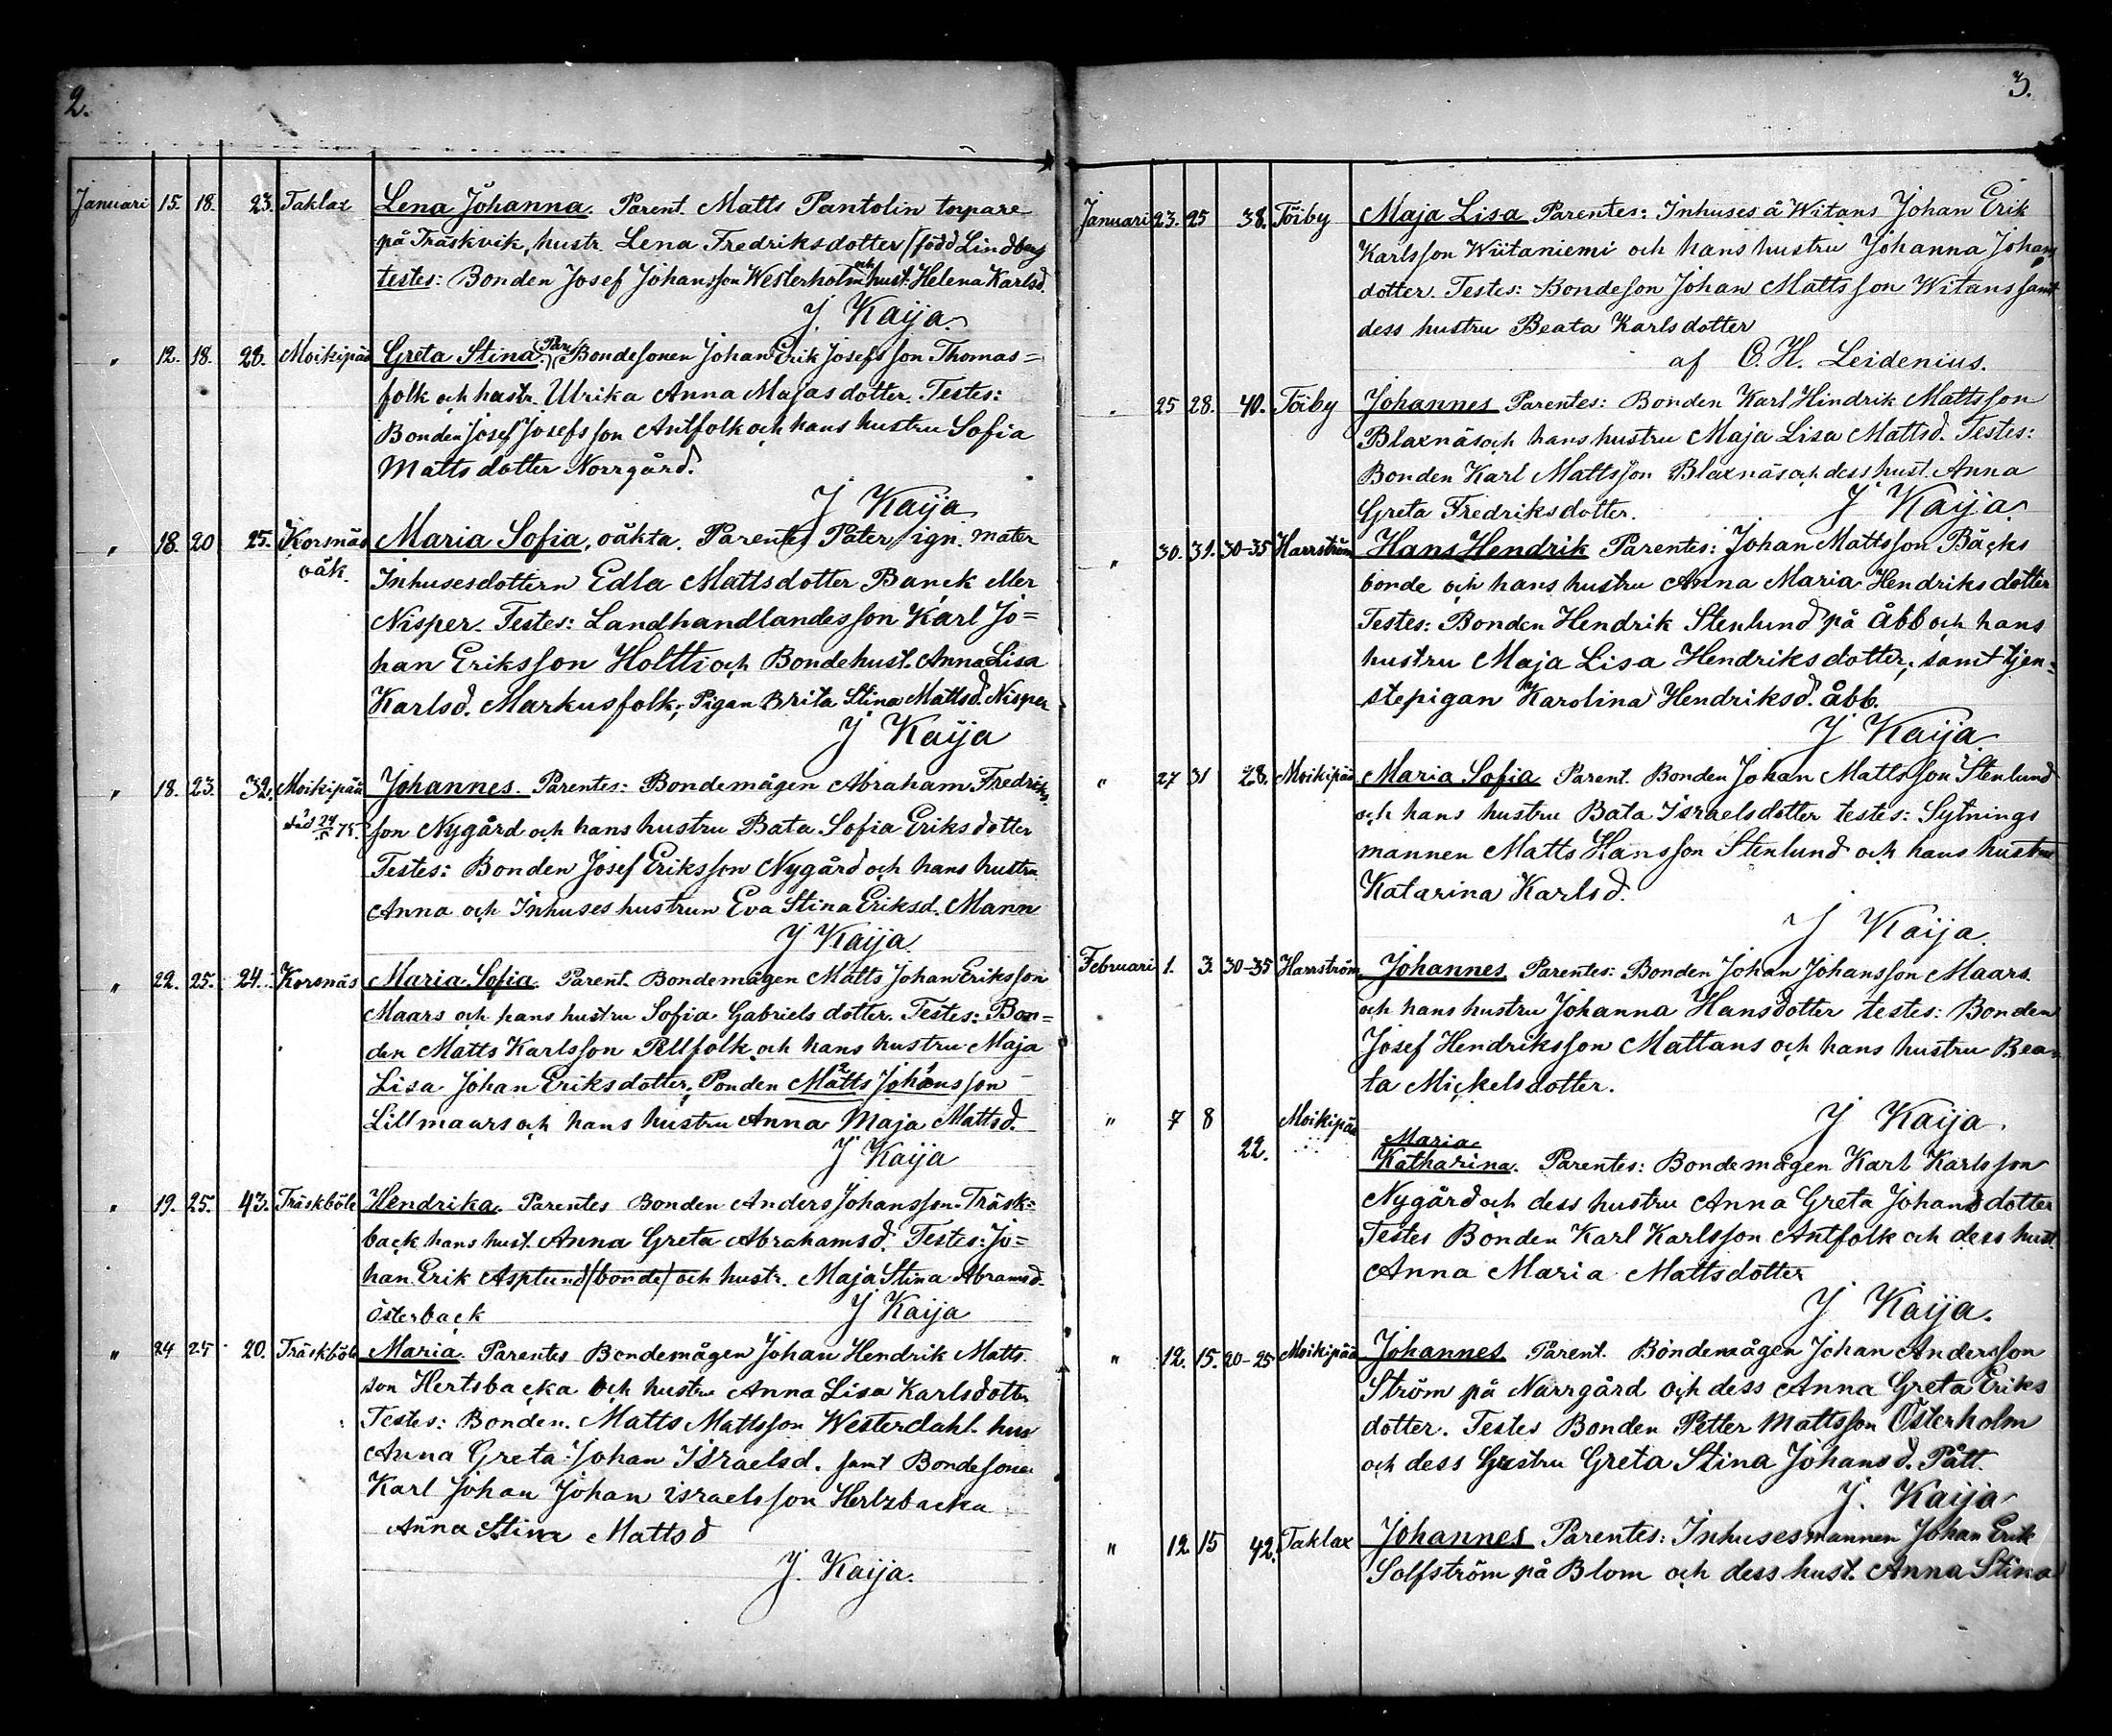 2.
Januari 15. 18. 23. Taklax Lena Johanna. Parent. Matts Pantolin torpare
på Träskvik, hustr. Lena Fredriksdotter (född Lindberg
testes: Bonden Josef Johansson Westerholm och hust. Helena Karlsd.
J. Kaija.
" 12. 18. 28. Moikipää Greta Stina. (Par.) Bondesonen Johan Erik Josefsson Thomas=
folk och hustr. Ulrika Anna Majasdotter. Testes:
Bonden Josef Josefsson Antfolk och hans hustru Sofia
Mattsdotter Norrgård.
J Kaija
" 18. 20 25. Korsnäs Maria Sofia, oäkta. Parentes Pater ign. mater
oäk. Inhusesdottern Edla Mattsdotter Banck eller
Nisper. Testes: Landhandlandesson Karl Jo=
han Eriksson Holtti och Bondehust. Anna Lisa
Karlsd. Markusfolk; Pigan Brita Stina Mattsd. Nisper
J Kaija
" 18. 23. 32. Moikipää Johannes. Parentes: Bondemågen Abraham Fredriks
död 24/5 75. son Nygård och hans hustru Bata Sofia Eriksdotter
Testes: Bonden Josef Eriksson Nygård och hans hustru
Anna och Inhuses hustrun Eva Stina Eriksd. Mann
J Kaija.
" 22. 25. 24. Korsnäs Maria Sofia. Parent. Bondemågen Matts Johan Eriksson
Maars och hans hustru Sofia Gabrielsdotter. Testes: Bon=
den Matts Karlsson Pellfolk och hans hustru Maja
Lisa Johan Eriksdotter; Ponden Matts 2 Johansson 1
Lillmaars och hans hustru Anna Maja Mattsd.
J Kaija
" 19. 25. 43. Träskböle Hendrika. Parentes Bonden Anders Johansson Träsk=
back hans hust. Anna Greta Abrahamsd. Testes: Jo=
han Erik Asplund (bonde) och hustr. Maja Stina Abramsd.
Österback J Kaija
" 24 25 20. Träskböle Maria. Parentes Bondemågen Johan Hendrik Matts
son Hertsbacka och hustru Anna Lisa Karlsdotter
Testes: Bonden. Matts Mattsson Westerdahl. hus
Anna Greta Johan Israelsd. samt Bondesonen
Karl Johan Johan israelsson Hertzbacka
Anna Stina Mattsd
J. Kaija.
3.
Januari 23. 25 38. Töiby Maja Lisa Parentes: Inhuses å Witans Johan Erik
Karlsson Wiitaniemi och hans hustru Johanna Johans
dotter. Testes: Bondeson Johan Mattsson Witans samt
dess hustru Beata Karlsdotter
af C. H. Leidenius.
" 25 28. 40. Töiby Johannes Parentes: Bonden Karl Hindrik Mattsson
Blaxnäs och hans hustru Maja Lisa Mattsd. Testes:
Bonden Karl Mattsson Blaxnäs och dess hust. Anna
Greta Fredriksdotter. J Kaija.
" 30. 31. 30-35 Harrström Hans Hendrik Parentes: Johan Mattsson Bäcks
bonde och hans hustru Anna Maria Hendriksdotter
Testes: Bonden Hendrik Stenlund på Åbb och hans
hustru Maja Lisa Hendriksdotter; samt tjen=
stepigan Karolina Hendriksd. åbb.
J Kaija
" 27 31 28. Moikipää Maria Sofia Parent. Bonden Johan Mattsson Stenlund
och hans hustru Bata Israelsdotter testes: Sytnings
mannen Matts Hansson Stenlund och hans hustru
Katarina Karlsd.
J Kaija.
Februari 1. 3. 30-35 Harrström Johannes Parentes: Bonden Johan Johansson Maars.
och hans hustru Johanna Hansdotter testes: Bonden
Josef Hendriksson Mattans och hans hustru Bea=
ta Mickelsdotter.
J Kaija.
" 7 8 22. Moikipää Maria
Katharina. Parentes: Bondemågen Karl Karlsson
Nygård och dess hustru Anna Greta Johansdotter
Testes Bonden Karl Karlsson Antfolk och dess hust.
Anna Maria Mattsdotter
J Kaija.
" 12. 15. 20-25 Moikipää Johannes Parent. Bondemågen Johan Andersson
Ström på Narrgård och dess Anna Greta Eriks
dotter. Testes Bonden Petter Mattsson Österholm
och dess hustru Greta Stina Johansd. Pått.
J. Kaija
" 12. 15 42. Taklax Johannes Parentes: Inhusesmannen Johan Erik
Solfström på Blom och dess hust. Anna Stina